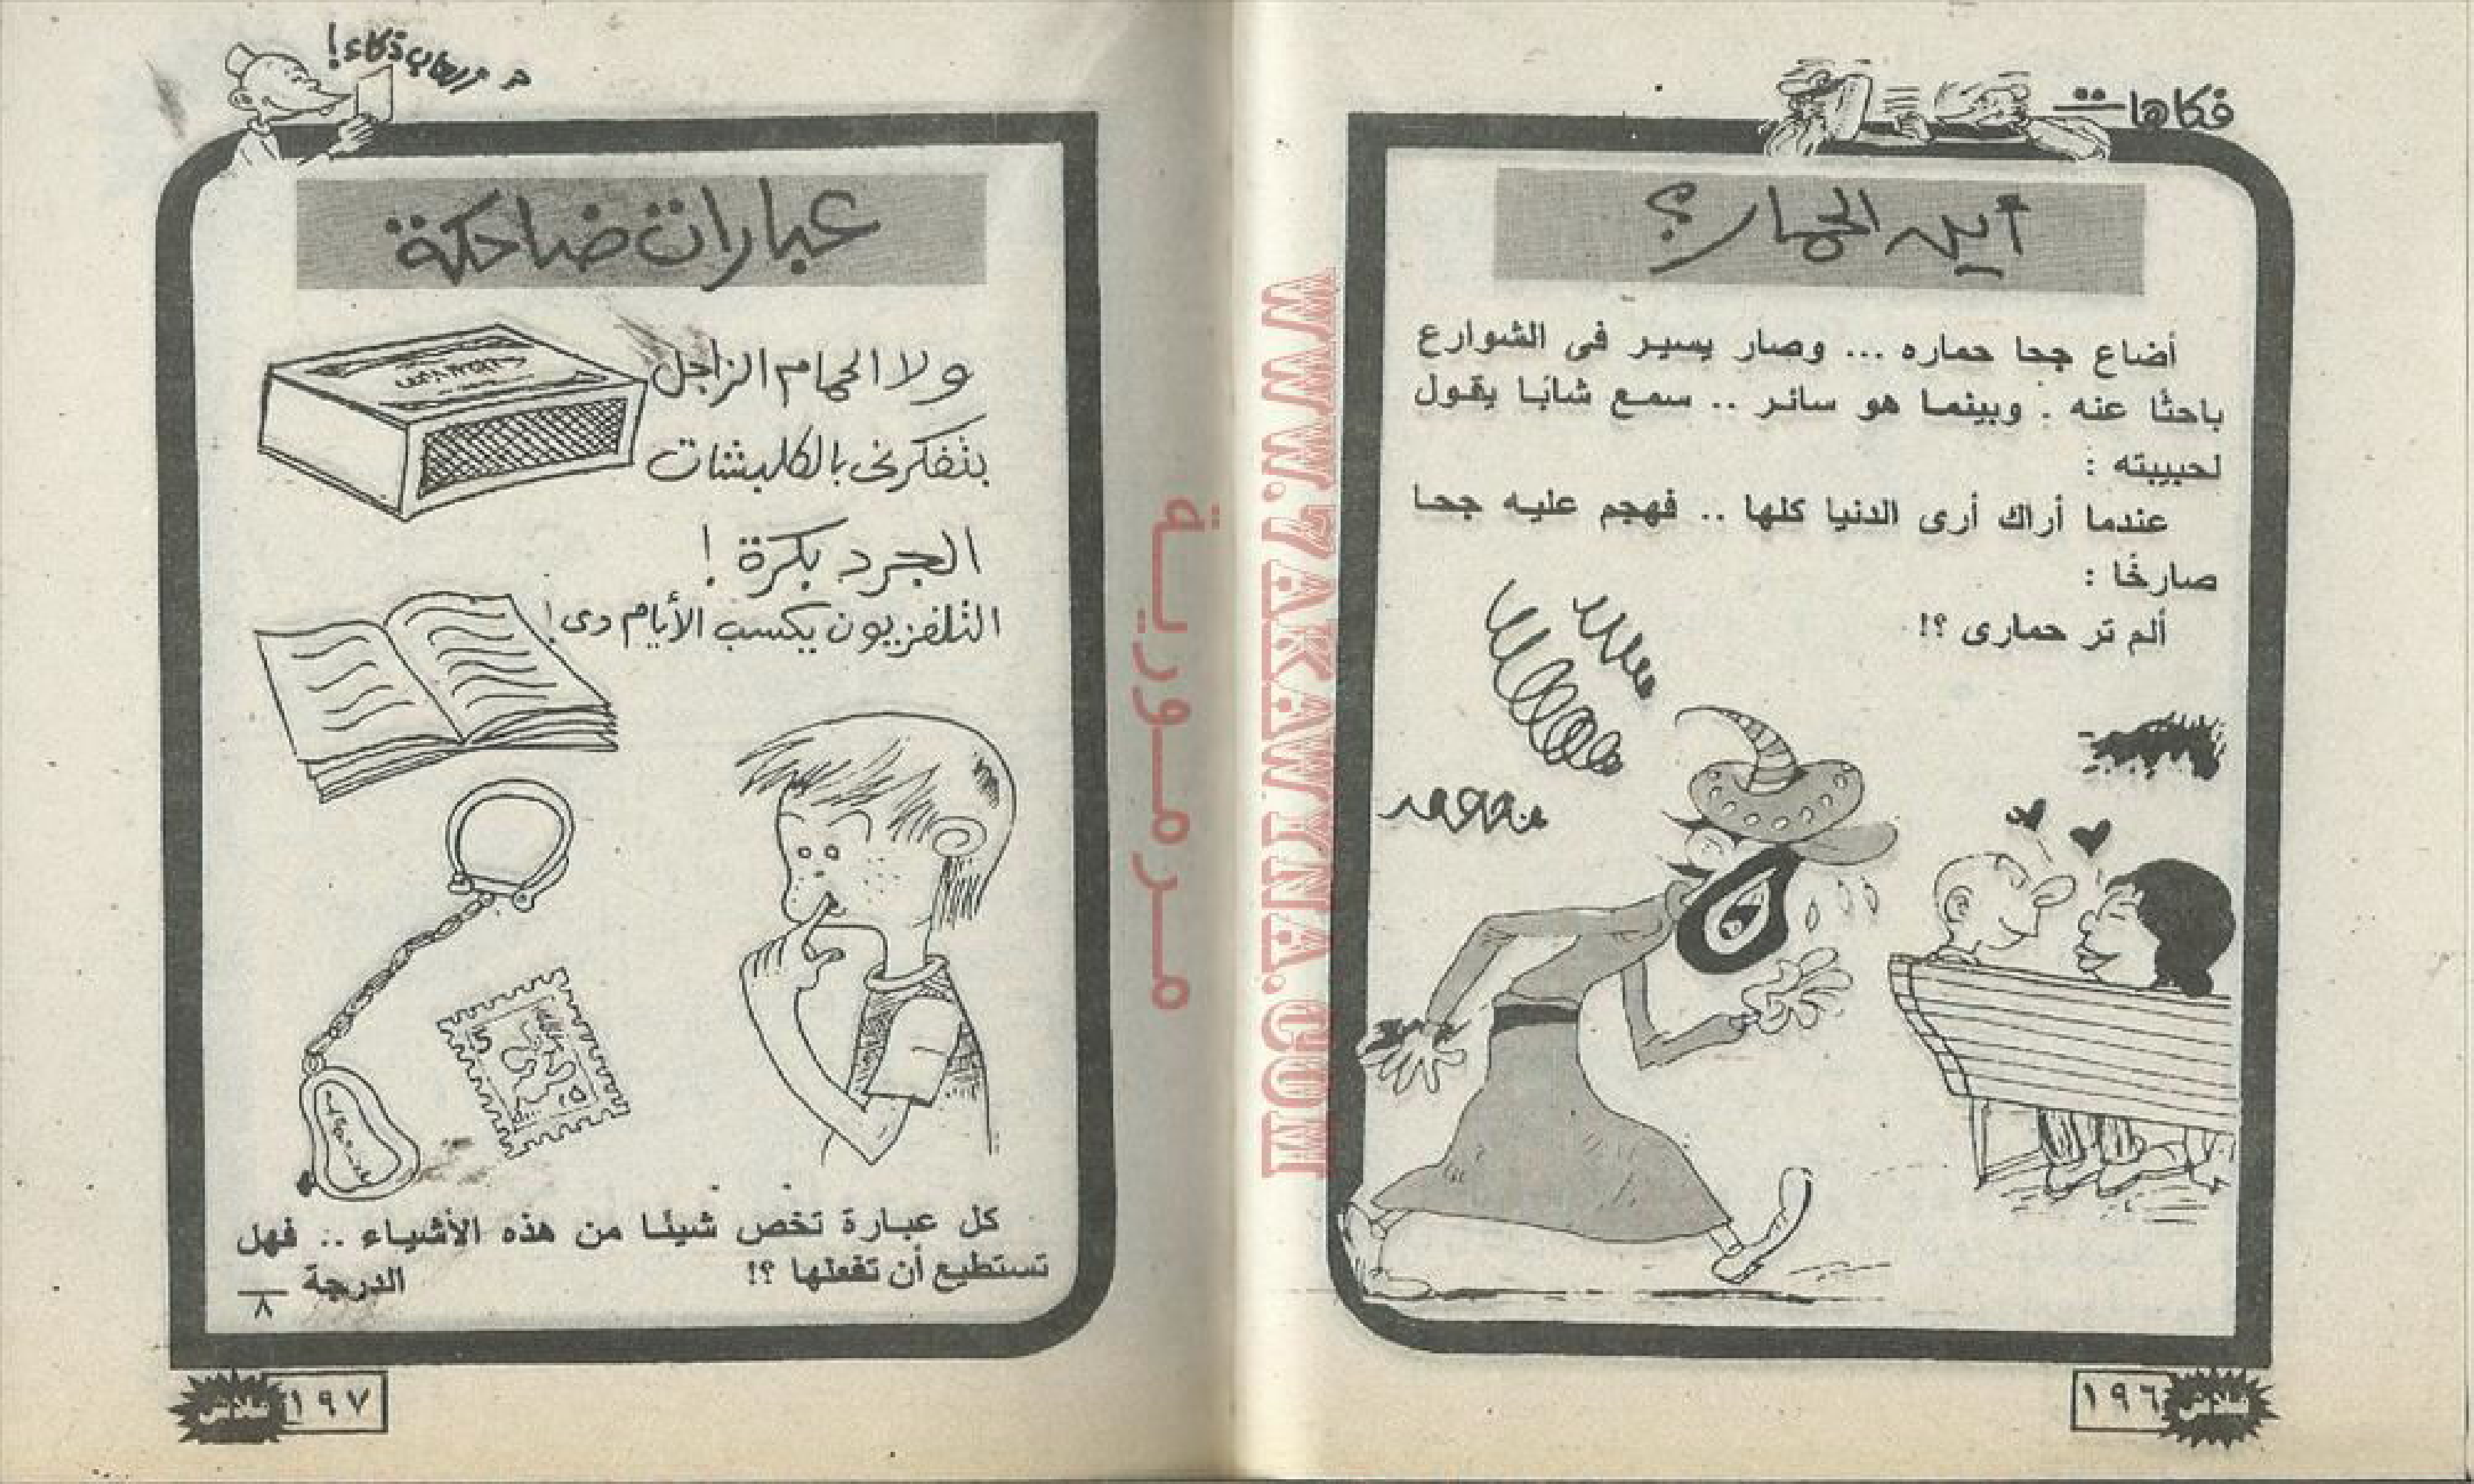 فكاهات
أين الحمار؟
أضاع جحا حماره ... وصار يسير فى الشوارع
باحثا عنه . وبينما هو سائر .. سمع شابا يقول
لحبيبته :
عندما أراك أرى الدنيا كلها .. فهجم عليه جحا
صارخا :
ألم تر حمارى ؟!
١٩٦
فلاش
WWW.7AKAWYNA.COM
مرمورية
ألعاب ذكاء!
عبارات ضاحكة
ولا الحمام الزاجل
بتفكرنى بالكلبشات
الجرد بكرة !
التلفزيون يكسب الأيام دى!
كل عبارة تخص شيئا من هذه الأشياء .. فهل
تستطيع أن تفعلها ؟!
الدرجة
٨
١٩٧
فلاش